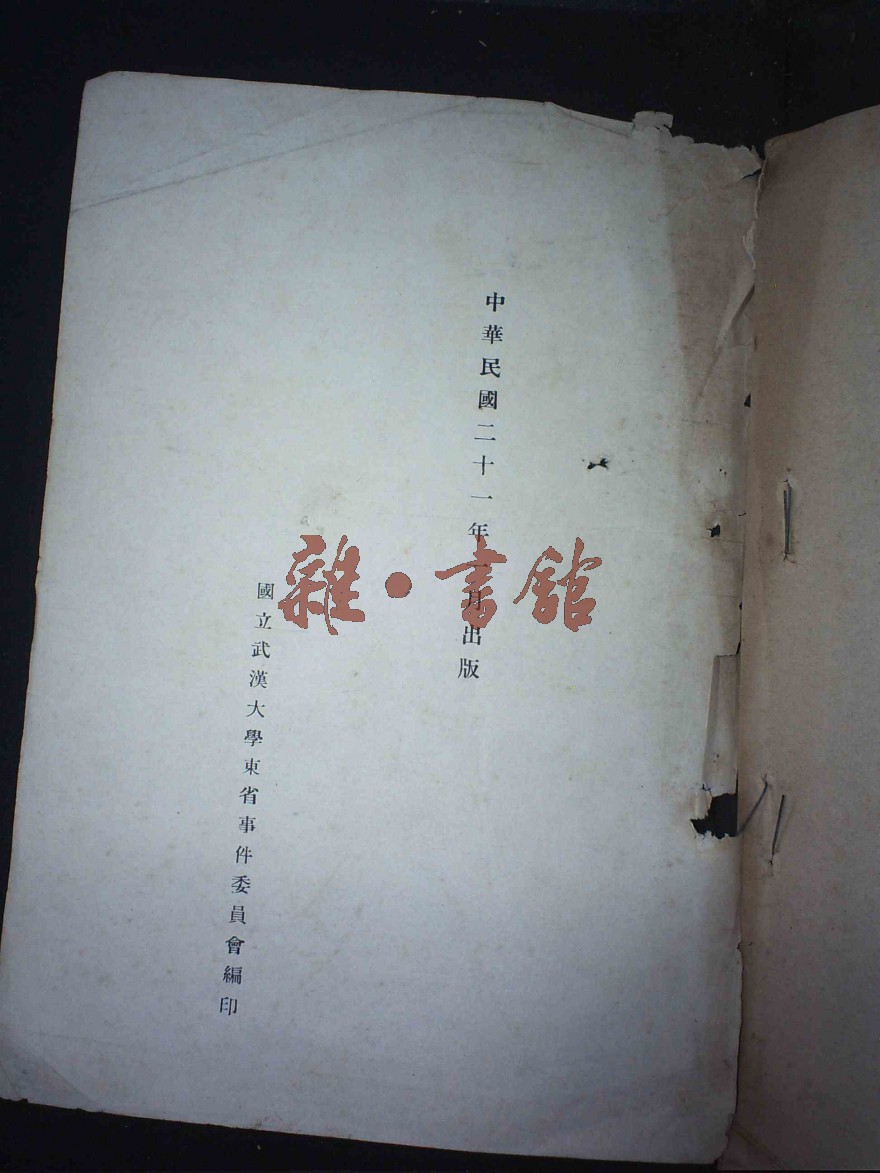 中華民國二十一年一月出版
國立武漢大學東省事件委員會編印
雜·書館